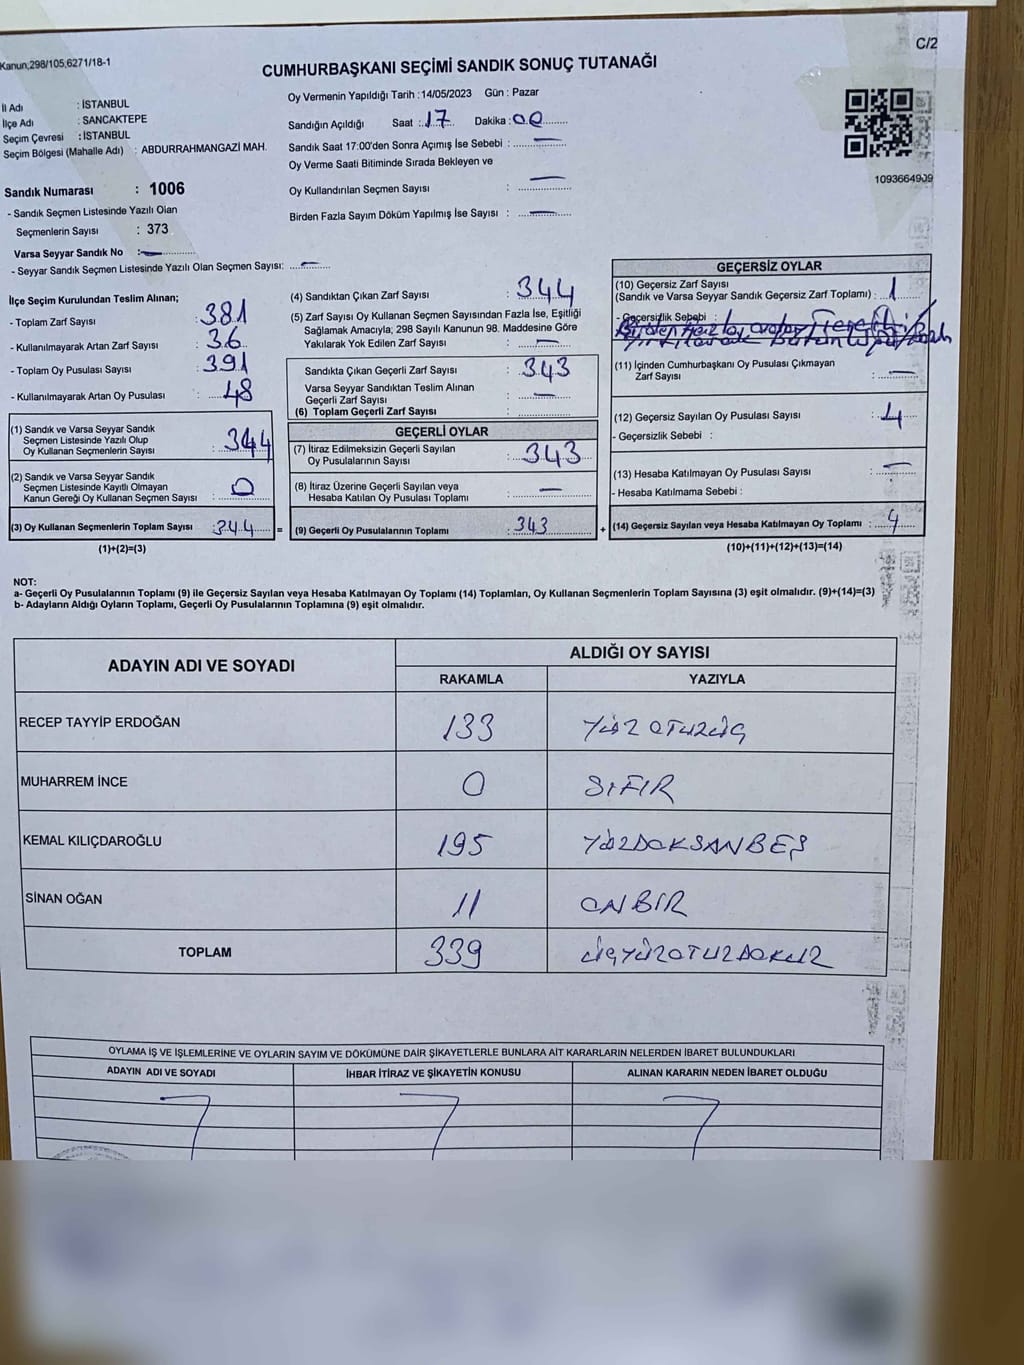 C/2
Kanun;298/105,6271/18-1
CUMHURBAŞKANI SEÇİMİ SANDIK SONUÇ TUTANAĞI
İl Adı : İSTANBUL
İlçe Adı : SANCAKTEPE
Seçim Çevresi : İSTANBUL
Seçim Bölgesi (Mahalle Adı) : ABDURRAHMANGAZİ MAH.
Sandık Numarası : 1006
- Sandık Seçmen Listesinde Yazılı Olan
Seçmenlerin Sayısı : 373
Varsa Seyyar Sandık No :
- Seyyar Sandık Seçmen Listesinde Yazılı Olan Seçmen Sayısı:
Oy Vermenin Yapıldığı Tarih : 14/05/2023 Gün : Pazar
Sandığın Açıldığı Saat : 17 Dakika : 00
Sandık Saat 17:00'den Sonra Açımış İse Sebebi :
Oy Verme Saati Bitiminde Sırada Bekleyen ve
Oy Kullandırılan Seçmen Sayısı :
Birden Fazla Sayım Döküm Yapılmış İse Sayısı :
1093664909
İlçe Seçim Kurulundan Teslim Alınan;
- Toplam Zarf Sayısı : 381
- Kullanılmayarak Artan Zarf Sayısı : 36
- Toplam Oy Pusulası Sayısı : 391
- Kullanılmayarak Artan Oy Pusulası : 48
(1) Sandık ve Varsa Seyyar Sandık
Seçmen Listesinde Yazılı Olup
Oy Kullanan Seçmenlerin Sayısı : 344
(2) Sandık ve Varsa Seyyar Sandık
Seçmen Listesinde Kayıtlı Olmayan
Kanun Gereği Oy Kullanan Seçmen Sayısı : 0
(3) Oy Kullanan Seçmenlerin Toplam Sayısı : 344 =
(1)+(2)=(3)
(4) Sandıktan Çıkan Zarf Sayısı : 344
(5) Zarf Sayısı Oy Kullanan Seçmen Sayısından Fazla İse, Eşitliği
Sağlamak Amacıyla; 298 Sayılı Kanunun 98. Maddesine Göre
Yakılarak Yok Edilen Zarf Sayısı :
Sandıkta Çıkan Geçerli Zarf Sayısı : 343
Varsa Seyyar Sandıktan Teslim Alınan
Geçerli Zarf Sayısı :
(6) Toplam Geçerli Zarf Sayısı :
GEÇERLİ OYLAR
(7) İtiraz Edilmeksizin Geçerli Sayılan
Oy Pusulalarının Sayısı : 343
(8) İtiraz Üzerine Geçerli Sayılan veya
Hesaba Katılan Oy Pusulası Toplamı :
(9) Geçerli Oy Pusulalarının Toplamı : 343 +
GEÇERSİZ OYLAR
(10) Geçersiz Zarf Sayısı
(Sandık ve Varsa Seyyar Sandık Geçersiz Zarf Toplamı) : 1
- Geçersizlik Sebebi :
(11) İçinden Cumhurbaşkanı Oy Pusulası Çıkmayan
Zarf Sayısı :
(12) Geçersiz Sayılan Oy Pusulası Sayısı : 4
- Geçersizlik Sebebi :
(13) Hesaba Katılmayan Oy Pusulası Sayısı :
- Hesaba Katılmama Sebebi :
(14) Geçersiz Sayılan veya Hesaba Katılmayan Oy Toplamı :
(10)+(11)+(12)+(13)=(14)
NOT:
a- Geçerli Oy Pusulalarının Toplamı (9) ile Geçersiz Sayılan veya Hesaba Katılmayan Oy Toplamı (14) Toplamları, Oy Kullanan Seçmenlerin Toplam Sayısına (3) eşit olmalıdır. (9)+(14)=(3)
b- Adayların Aldığı Oyların Toplamı, Geçerli Oy Pusulalarının Toplamına (9) eşit olmalıdır.
ADAYIN ADI VE SOYADI ALDIĞI OY SAYISI
RAKAMLA YAZIYLA
RECEP TAYYİP ERDOĞAN 133 YÜZ OTUZÜÇ
MUHARREM İNCE 0 SIFIR
KEMAL KILIÇDAROĞLU 195 YÜZDOKSANBEŞ
SİNAN OĞAN 11 ONBİR
TOPLAM 339 ÜÇYÜZOTUZDOKUZ
OYLAMA İŞ VE İŞLEMLERİNE VE OYLARIN SAYIM VE DÖKÜMÜNE DAİR ŞİKAYETLERLE BUNLARA AİT KARARLARIN NELERDEN İBARET BULUNDUKLARI
ADAYIN ADI VE SOYADI İHBAR İTİRAZ VE ŞİKAYETİN KONUSU ALINAN KARARIN NEDEN İBARET OLDUĞU